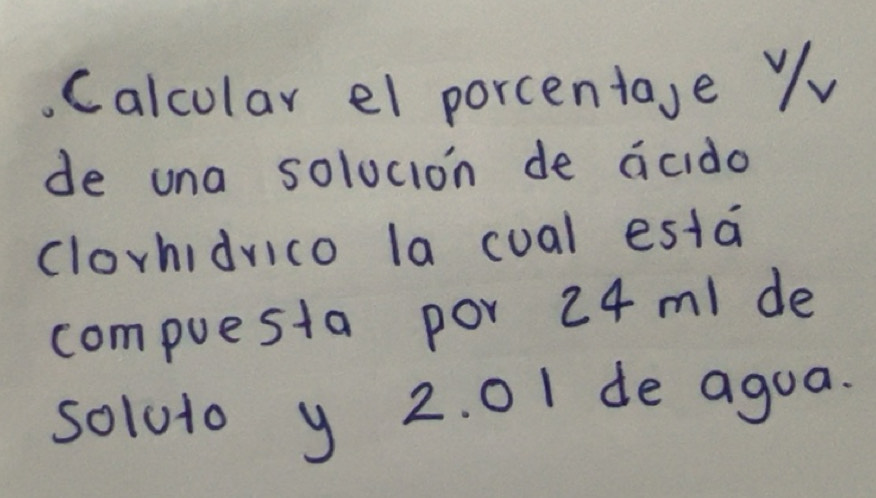 .Calcular el porcentaje v/v
de una solución de ácido
clorhidrico la cual está
compuesta por 24 ml de
soluto y 2.0 l de agua.